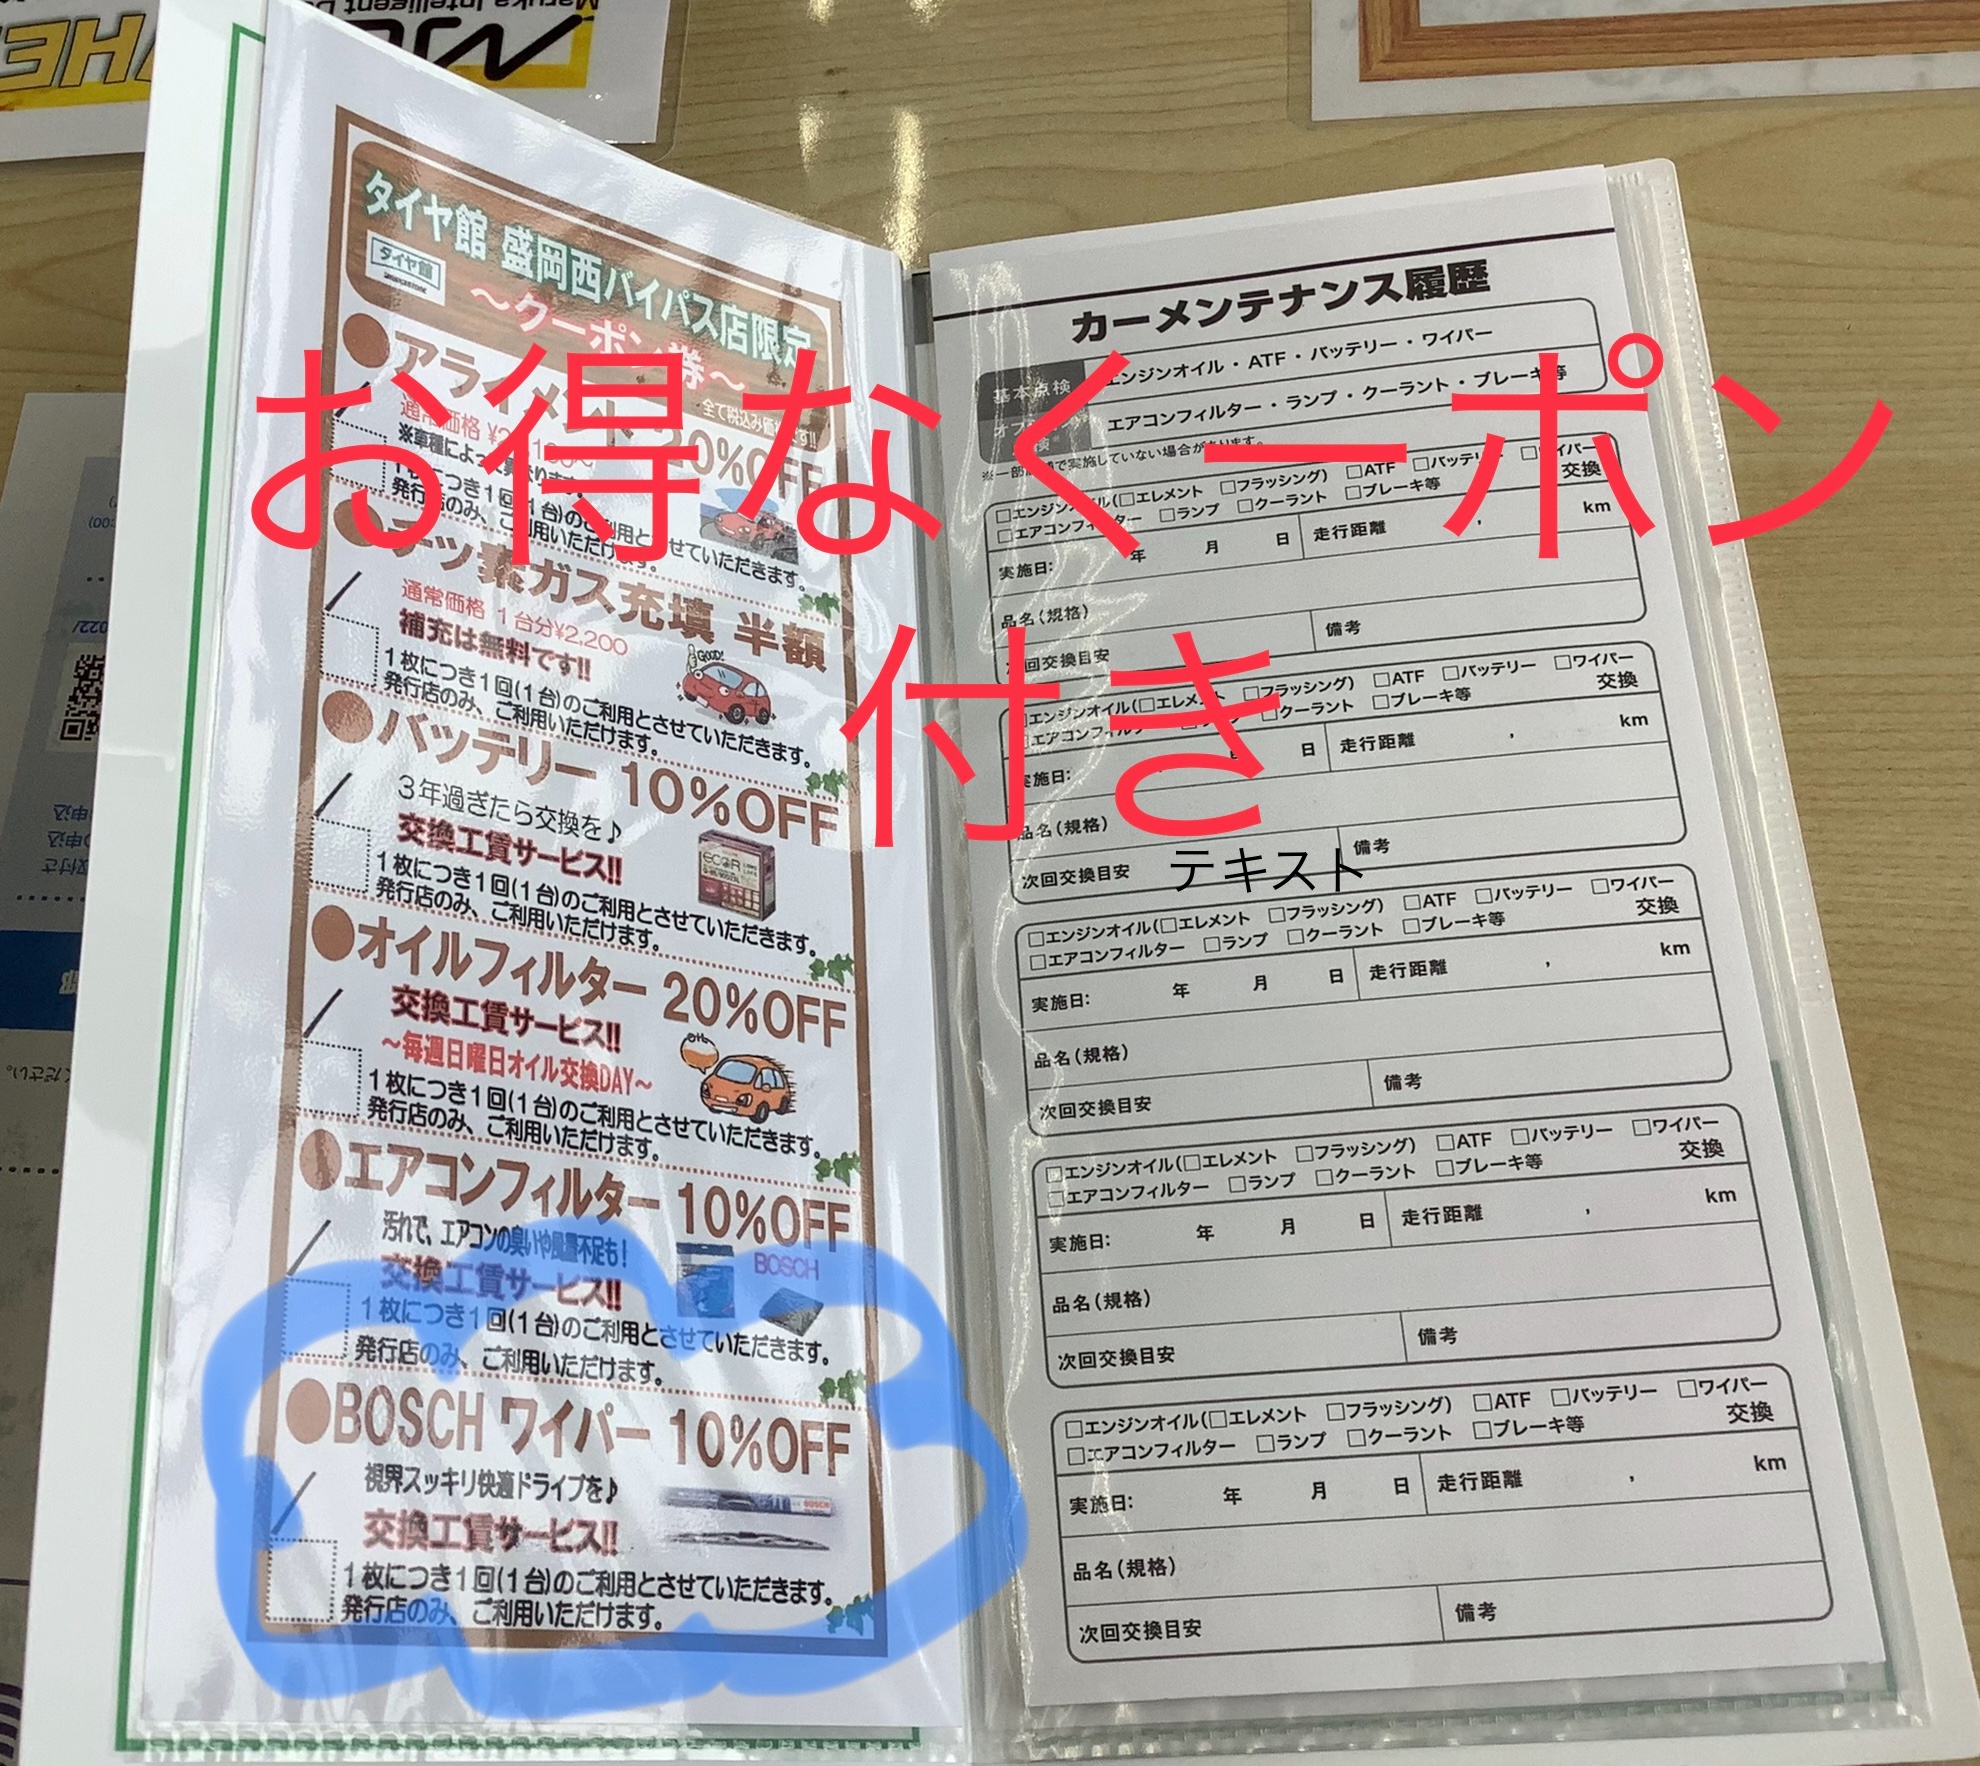 Maruka Intelligent
タイヤ館 盛岡西バイパス店限定
タイヤ館
BRIDGESTONE
〜クーポン券〜
全て税込み価格です!!
●アライメント 20%OFF
通常価格
※車種によって異なります。
1枚につき1回(1台)のご利用とさせていただきます。
発行店のみ、ご利用いただけます。
●チッ素ガス充填 半額
通常価格 1台分¥2,200
補充は無料です!!
GOOD!
1枚につき1回(1台)のご利用とさせていただきます。
発行店のみ、ご利用いただけます。
●バッテリー 10%OFF
3年過ぎたら交換を♪
交換工賃サービス!!
1枚につき1回(1台)のご利用とさせていただきます。
発行店のみ、ご利用いただけます。
●オイルフィルター 20%OFF
交換工賃サービス!!
〜毎週日曜日オイル交換DAY〜
1枚につき1回(1台)のご利用とさせていただきます。
発行店のみ、ご利用いただけます。
●エアコンフィルター 10%OFF
汚れで、エアコンの臭いや風量不足も!
BOSCH
交換工賃サービス!!
1枚につき1回(1台)のご利用とさせていただきます。
発行店のみ、ご利用いただけます。
●BOSCH ワイパー 10%OFF
視界スッキリ快適ドライブを♪
交換工賃サービス!!
1枚につき1回(1台)のご利用とさせていただきます。
発行店のみ、ご利用いただけます。
お得なくーポン
付き
テキスト
カーメンテナンス履歴
基本点検 エンジンオイル・ATF・バッテリー・ワイパー
エアコンフィルター・ランプ・クーラント・ブレーキ等
※一部店舗で実施していない場合があります。
□エンジンオイル(□エレメント □フラッシング) □ATF □バッテリー □ワイパー
□エアコンフィルター □ランプ □クーラント □ブレーキ等 交換
実施日: 年 月 日 走行距離 , km
品名(規格)
次回交換目安 備考
□エンジンオイル(□エレメント □フラッシング) □ATF □バッテリー □ワイパー
□エアコンフィルター □ランプ □クーラント □ブレーキ等 交換
実施日: 年 月 日 走行距離 , km
品名(規格)
次回交換目安 備考
□エンジンオイル(□エレメント □フラッシング) □ATF □バッテリー □ワイパー
□エアコンフィルター □ランプ □クーラント □ブレーキ等 交換
実施日: 年 月 日 走行距離 , km
品名(規格)
次回交換目安 備考
□エンジンオイル(□エレメント □フラッシング) □ATF □バッテリー □ワイパー
□エアコンフィルター □ランプ □クーラント □ブレーキ等 交換
実施日: 年 月 日 走行距離 , km
品名(規格)
次回交換目安 備考
□エンジンオイル(□エレメント □フラッシング) □ATF □バッテリー □ワイパー
□エアコンフィルター □ランプ □クーラント □ブレーキ等 交換
実施日: 年 月 日 走行距離 , km
品名(規格)
次回交換目安 備考